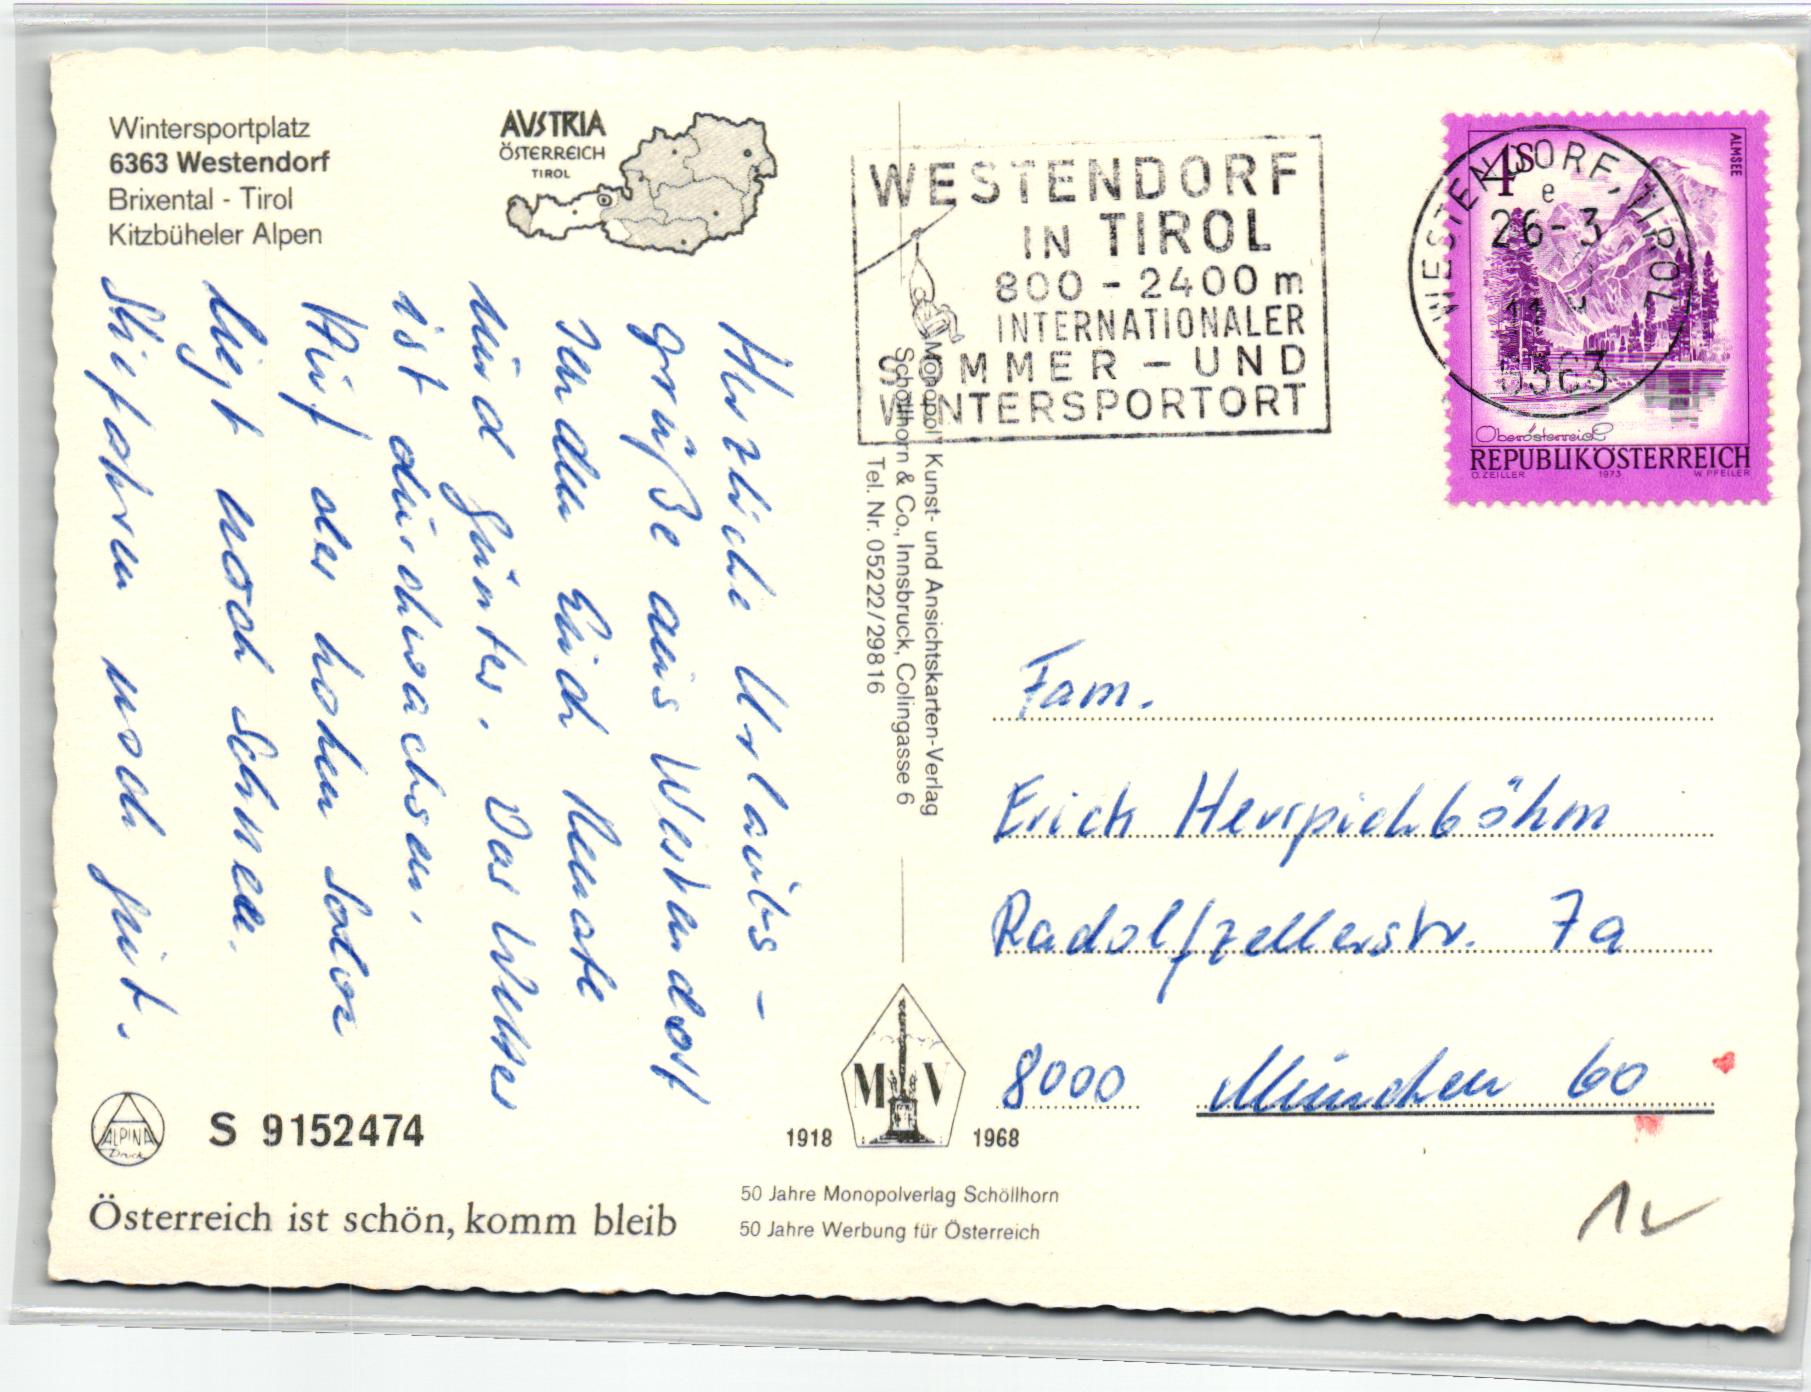 Wintersportplatz
6363 Westendorf
Brixental - Tirol
Kitzbüheler Alpen
AVSTRIA
ÖSTERREICH
TIROL
Herzliche Urlaubs-
grüße aus Westendorf
senden Euch Renate
und Günter. Das Wetter
ist durchwachsen.
Auf der hohen Salve
liegt noch Schnee.
Skifahren noch gut.
ALPINA
Druck
S 9152474
Österreich ist schön, komm bleib
"Monopol" Kunst- und Ansichtskarten-Verlag
Schöllhorn & Co., Innsbruck, Colingasse 6
Tel. Nr. 05222/29816
M V
1918 1968
50 Jahre Monopolverlag Schöllhorn
50 Jahre Werbung für Österreich
WESTENDORF
IN TIROL
800 - 2400 m
INTERNATIONALER
SOMMER - UND
WINTERSPORTORT
WESTENDORF, TIROL
e
26-3
11
6363
4S
ALMSEE
Oberösterreich
REPUBLIK ÖSTERREICH
O. ZEILLER 1973 W. PFEILER
Fam.
Erich Herrpichböhm
Radolfzellerstr. 7a
8000 München 60